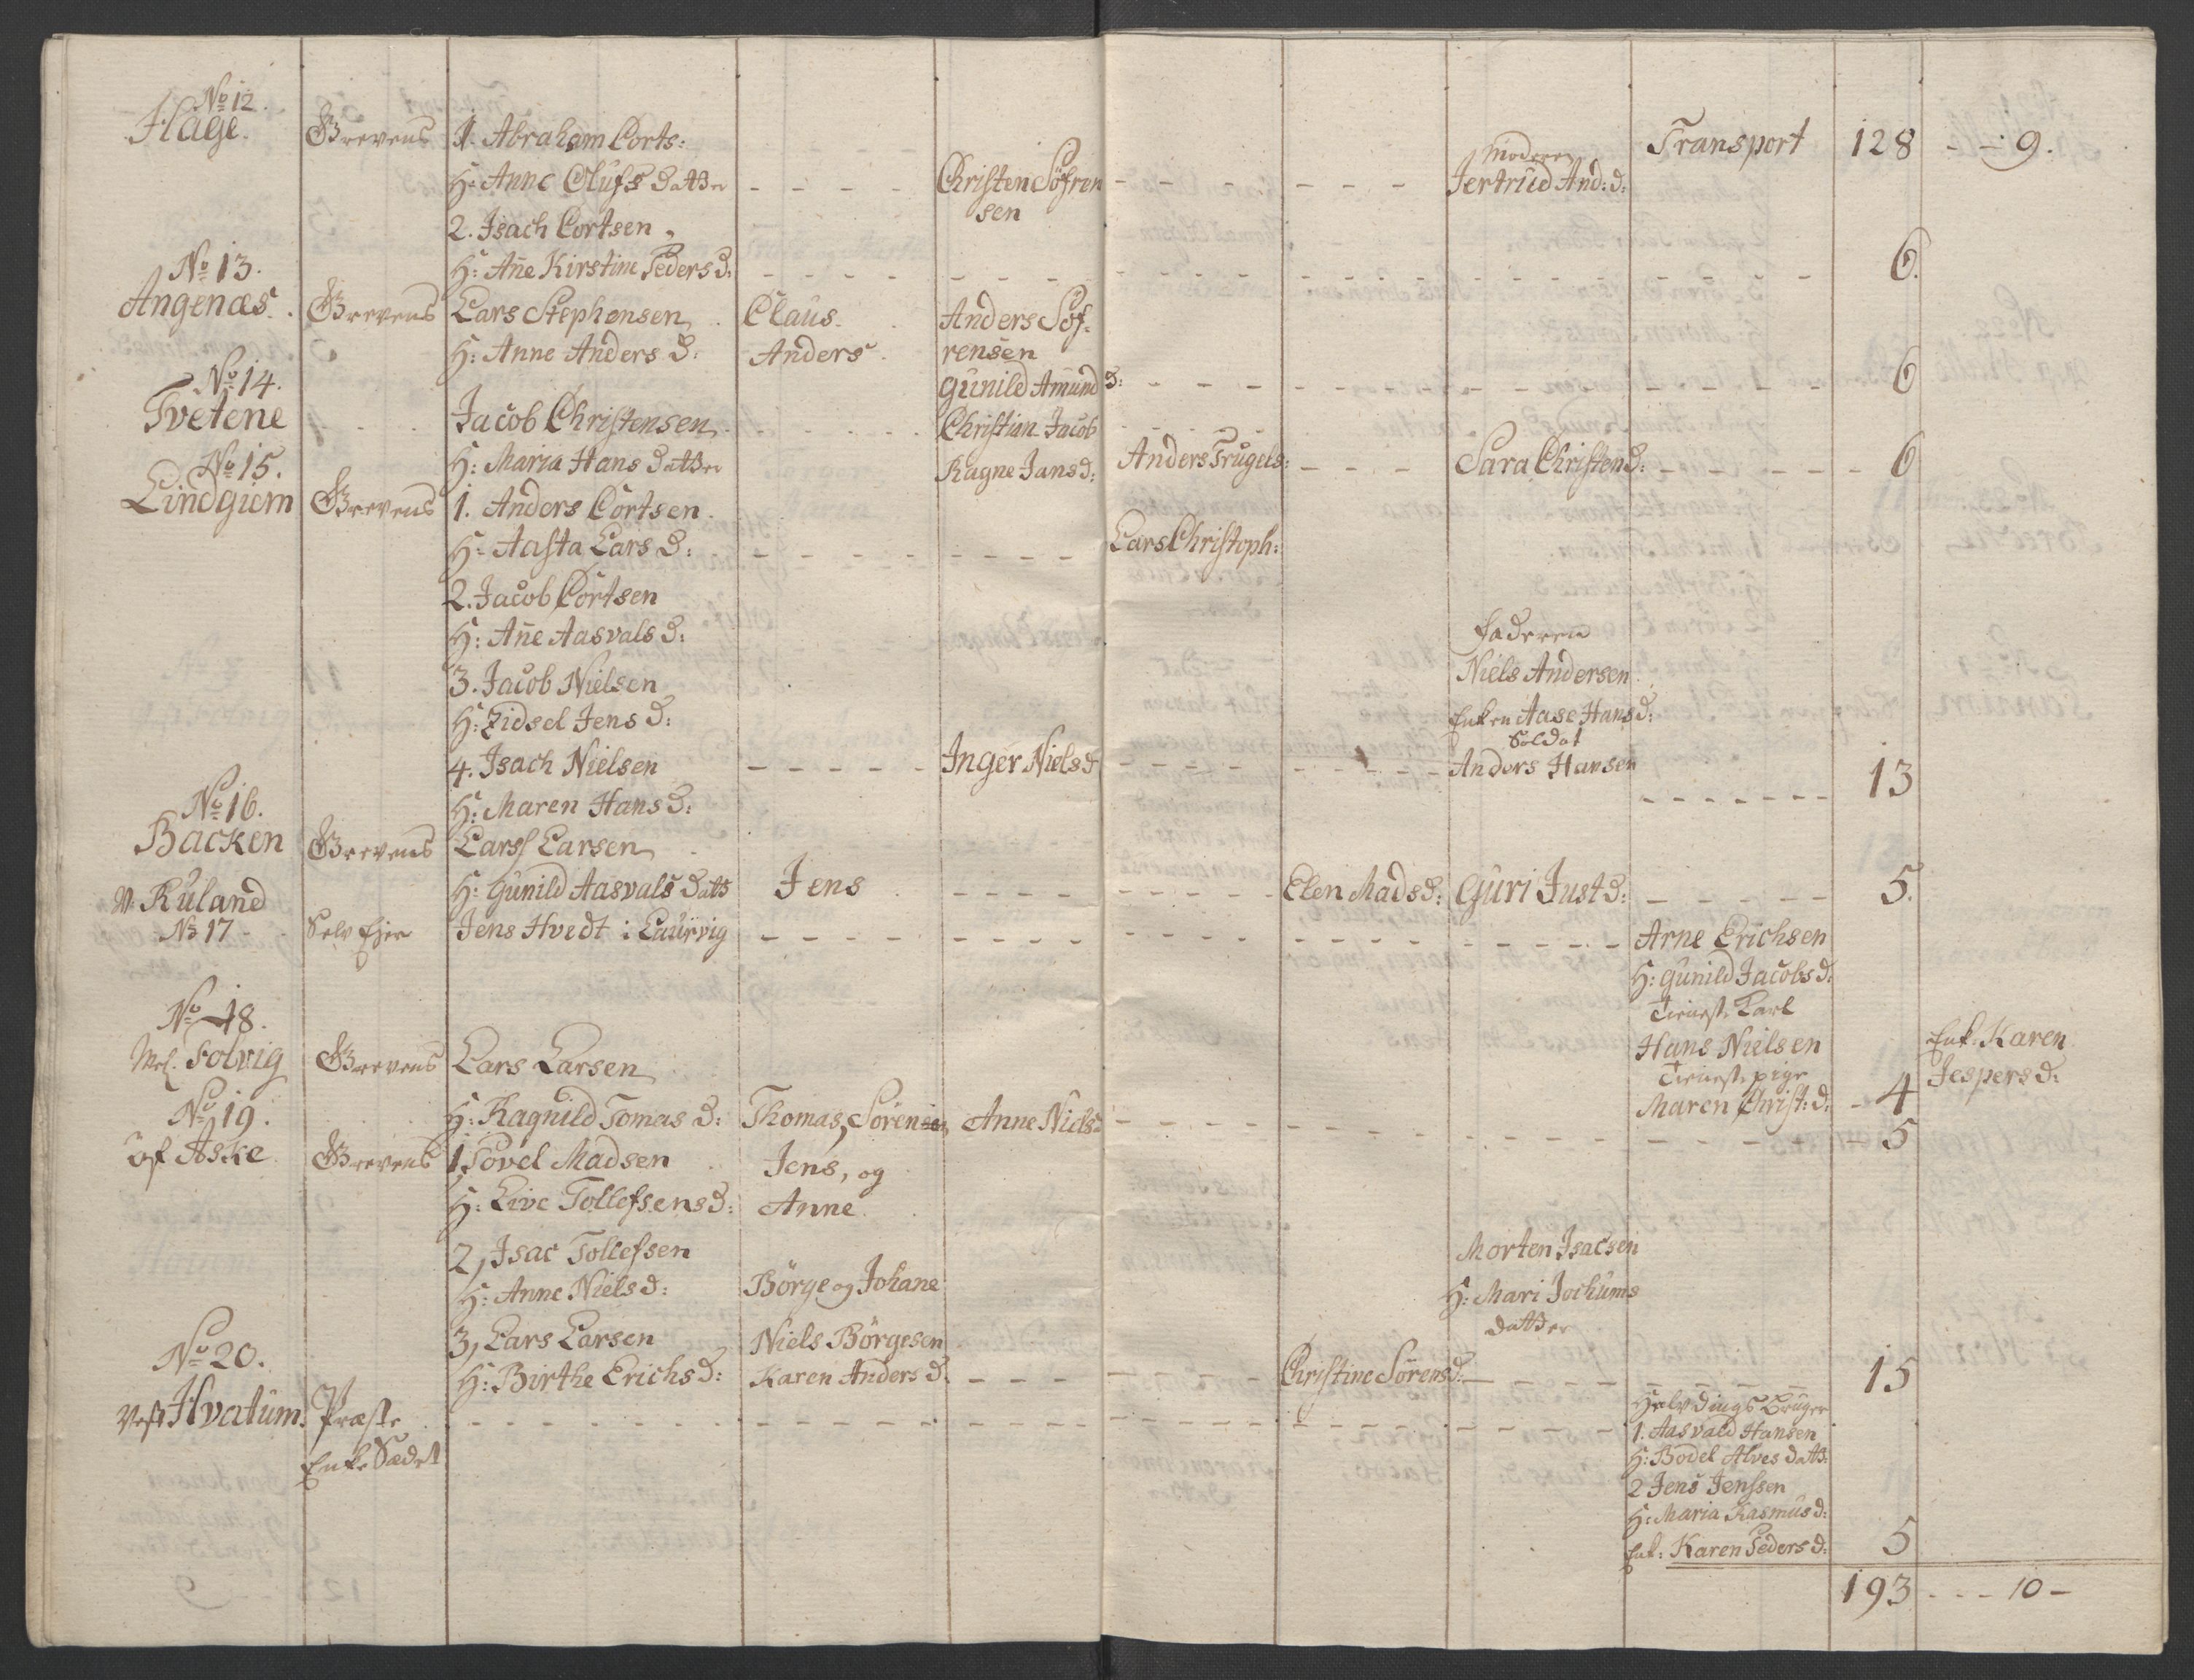 No 12.
Hage. Grevens 1. Abraham Corts: Transport 128 - - 9.
Moderen
H: Anne Olufs datter - - - - Christen Söfren - - - - - - Jertrud And: d:
sen
2. Isach Cortsen
No 13. H: Añe Kirstine Peders d: - - - - - - - - - - - - 6.
Angenæs. Grevens Lars Stephensen Claus. Anders Söf-
H: Anne Anders d: Anders. rensen
No 14. Gunild Amund d: - - - - - - - - - 6
Tvetene Jacob Christensen - - - - Christian Jacob
No 15. H: Maria Hans datter Ragne Jans d: Anders Trugels: - - - Sara Christen d: - - - - - 6
Lindgiem Grevens 1. Anders Cortsen
H: Aasta Lars d: - - - - - - - - Lars Christoph:
2. Jacob Cortsen
H: Añe Aasvals d: Faderen
3. Jacob Nielsen Niels Andersen
H: Zidsel Jens d: Enken Aase Hans d:
Soldat
4. Isach Nielsen - - - - - Inger Niels d - - - - - - - - Anders Hansen - - - - - - - 13
No 16. H: Maren Hans d:
Backen Grevens Lars Larsen
H: Gunild Aasvals datt Jens - - - - - - - - Elen Mads d: Guri Just d: - - - - - 5.
N. Ruland
No 17 - Selv Ejer Jens Hvedt i Laurvig - - - - - - - - - - - - - - - Arne Erichsen
H: Gunild Jacobs d:
No 18. Tieneste Karl
Mel. Solvig Grevens Lars Larsen Hans Nielsen Enk: Karen
Tieneste pige Jespers d:
No 19. H: Ragnild Tomas d: Thomas, Sören Anne Niels: - - - - - Maren Christ: d: - 4
öf Aske Grevens 1, Povel Madsen Jens, og - - - - - - 5
H: Live Tollefsens d: Anne
2, Isac Tollefsen Morten Isacsen
H: Anne Niels d: Börge og Johane H: Mari Jochums
datter
3, Lars Larsen Niels Börgesen
No 20. H: Birthe Erichs d: Karen Anders d. - - - - - - - Christine Sörens d: - - - - - 15
Vest Hvatum. Præste - - - - - - - - - - - - - - - Halvdings Bruger
Enke Sædet 1. Aasvald Hansen
H: Bodel Alves datt:
2 Jens Jenssen
H: Maria Rasmus d:
Enk: Karen Peders d: 5
193 - - - 10 -